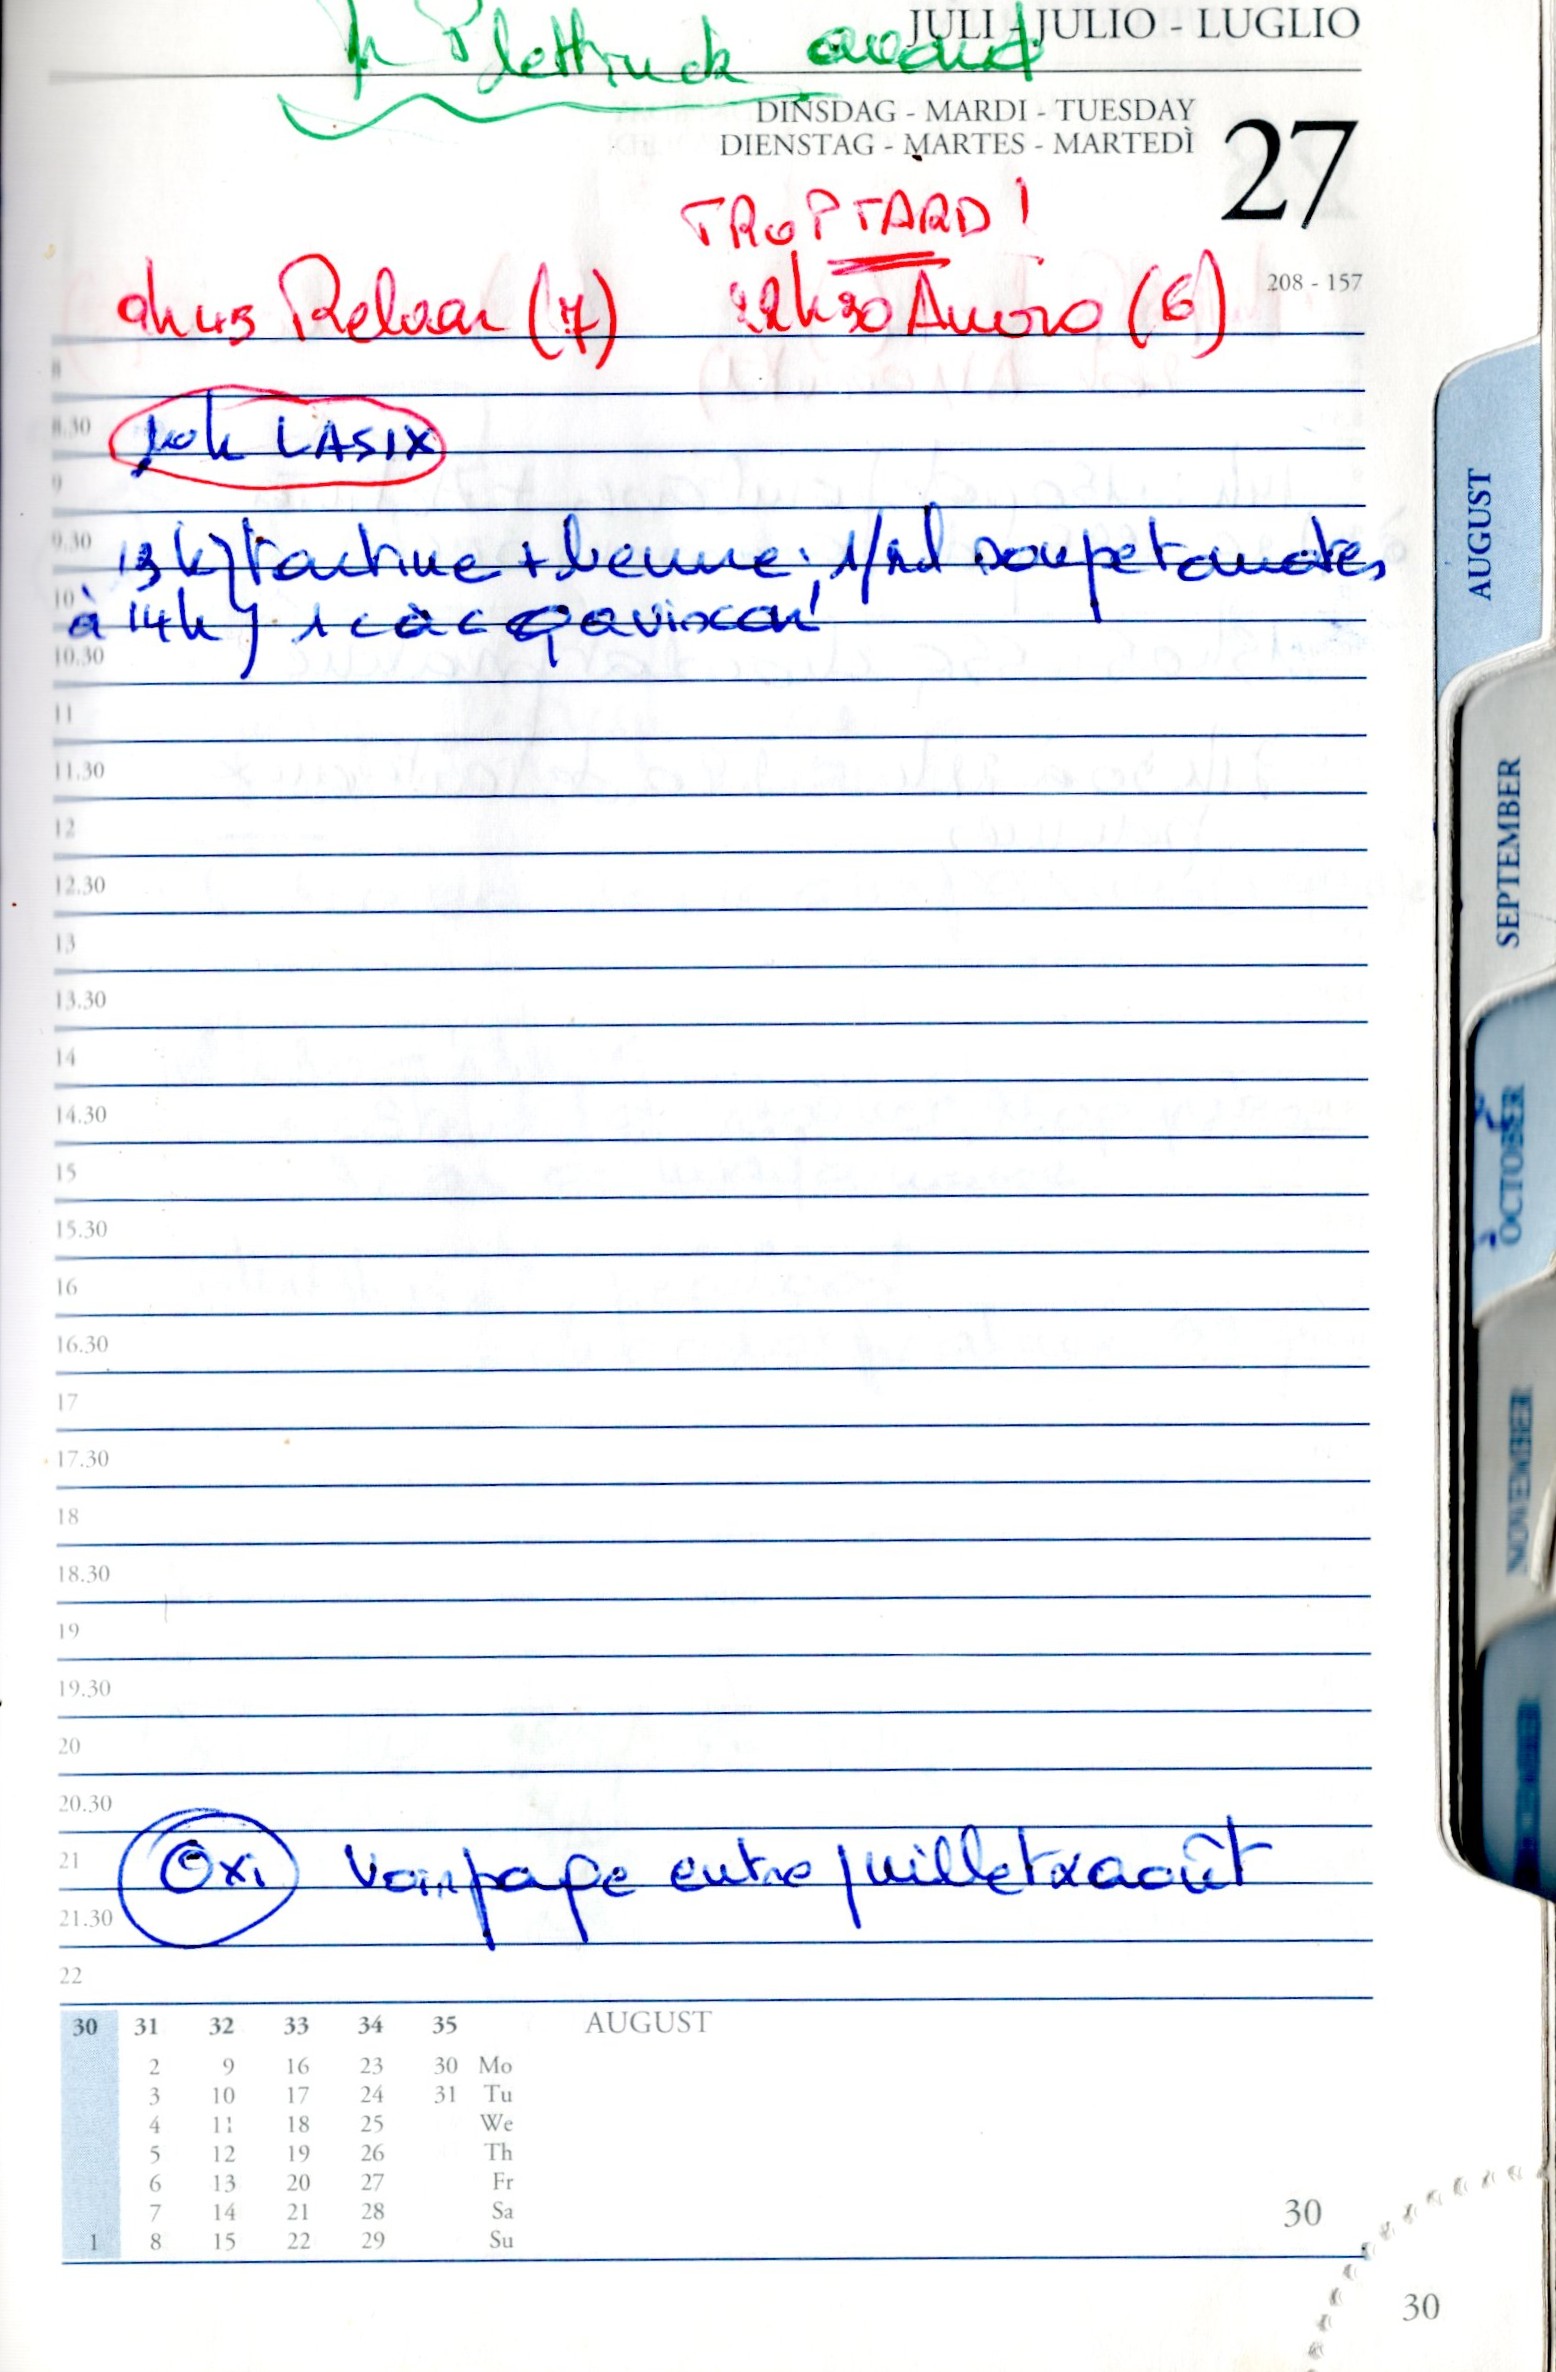 JULI - JULIO - LUGLIO
avant
DINSDAG - MARDI - TUESDAY
DIENSTAG - MARTES - MARTEDÌ
27
TROP TARD !
208 - 157
9h45 Relvar (7) 22h30 Anoro (6)
8
8.30
10h LASIX
9
9.30
13h) tartine + beurre, 1/2 l soupe tomates
10
à 14h) 1 c à c gaviscon
10.30
11
11.30
12
12.30
13
13.30
14
14.30
15
15.30
16
16.30
17
17.30
18
18.30
19
19.30
20
20.30
21
Oxi Voir page entre juillet & août
21.30
22
30 31 32 33 34 35 AUGUST
2 9 16 23 30 Mo
3 10 17 24 31 Tu
4 11 18 25 We
5 12 19 26 Th
6 13 20 27 Fr
7 14 21 28 Sa
1 8 15 22 29 Su
30
30
AUGUST
SEPTEMBER
OCTOBER
NOVEMBER